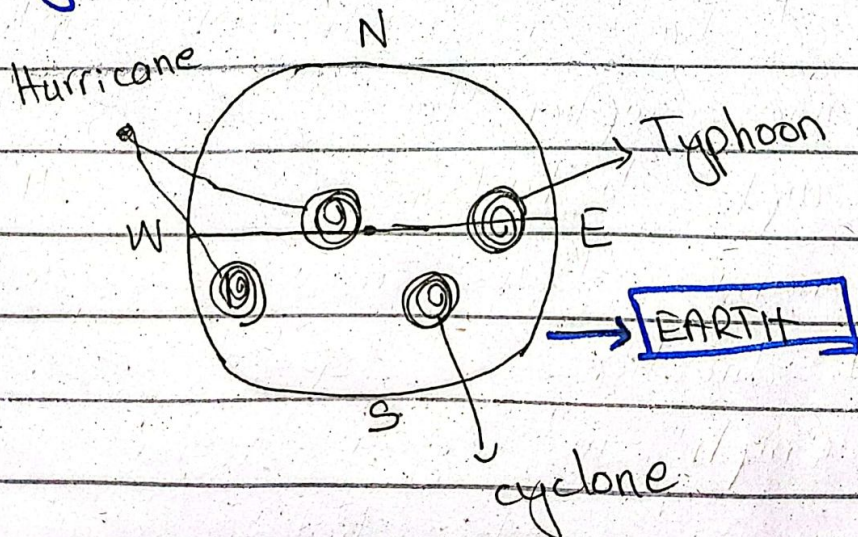 N
Hurricane
Typhoon
W
E
EARTH
S
cyclone